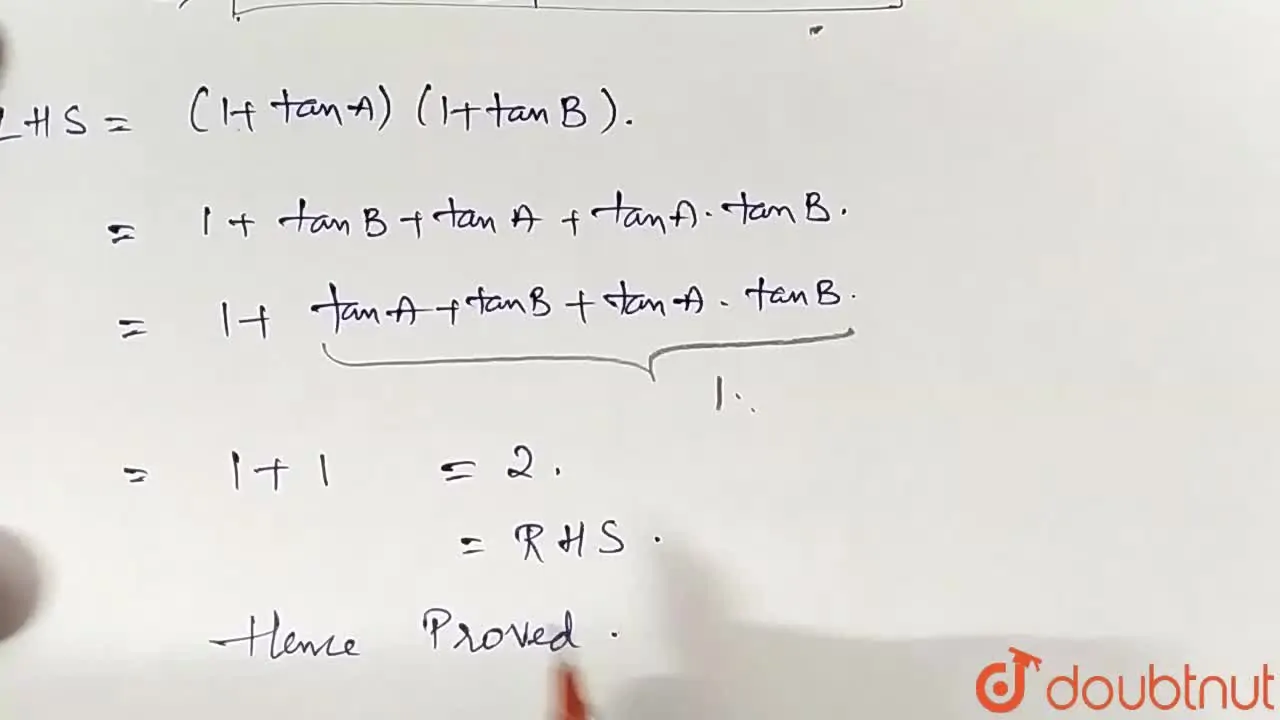 LHS = (1+ tanA) (1+tanB).
= 1+ tanB + tanA + tanA. tanB.
= 1+ tanA+tanB + tanA. tanB.
1.
= 1+1 = 2.
= RHS.
Hence Proved.
doubtnut